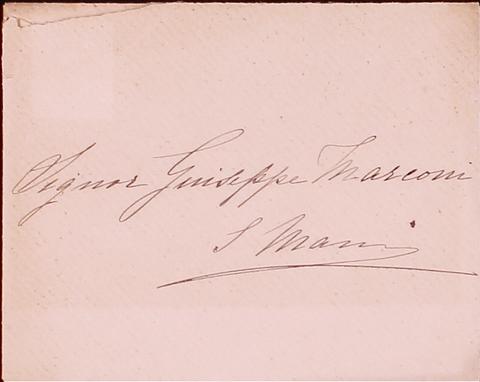 Signor Giuseppe Marconi
S Mani